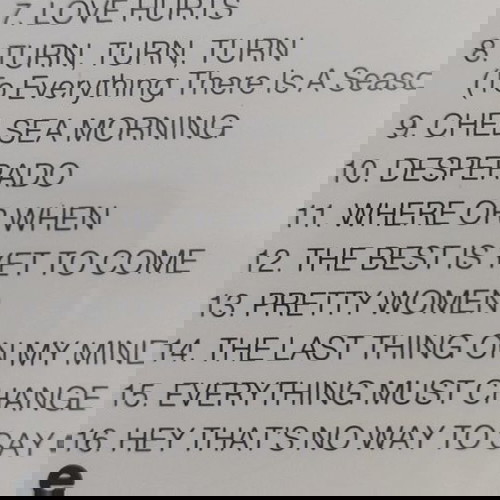 7. LOVE HURTS
8. TURN, TURN, TURN
(To Everything There Is A Seaso
9. CHELSEA MORNING
10. DESPERADO
11. WHERE OR WHEN
12. THE BEST IS YET TO COME
13. PRETTY WOMEN
ON MY MIND 14. THE LAST THING ON
CHANGE 15. EVERYTHING MUST
SAY • 16. HEY THAT'S NO WAY TO